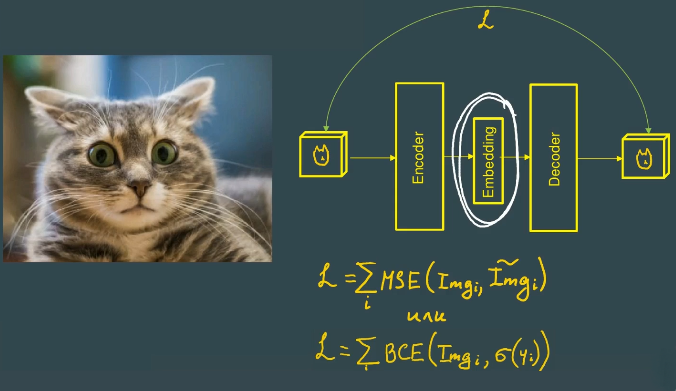 ℒ
Encoder
Embedding
Decoder
ℒ = ∑ᵢ MSE(Imgᵢ, Ĩmgᵢ)
или
ℒ = ∑ᵢ BCE(Imgᵢ, σ(yᵢ))